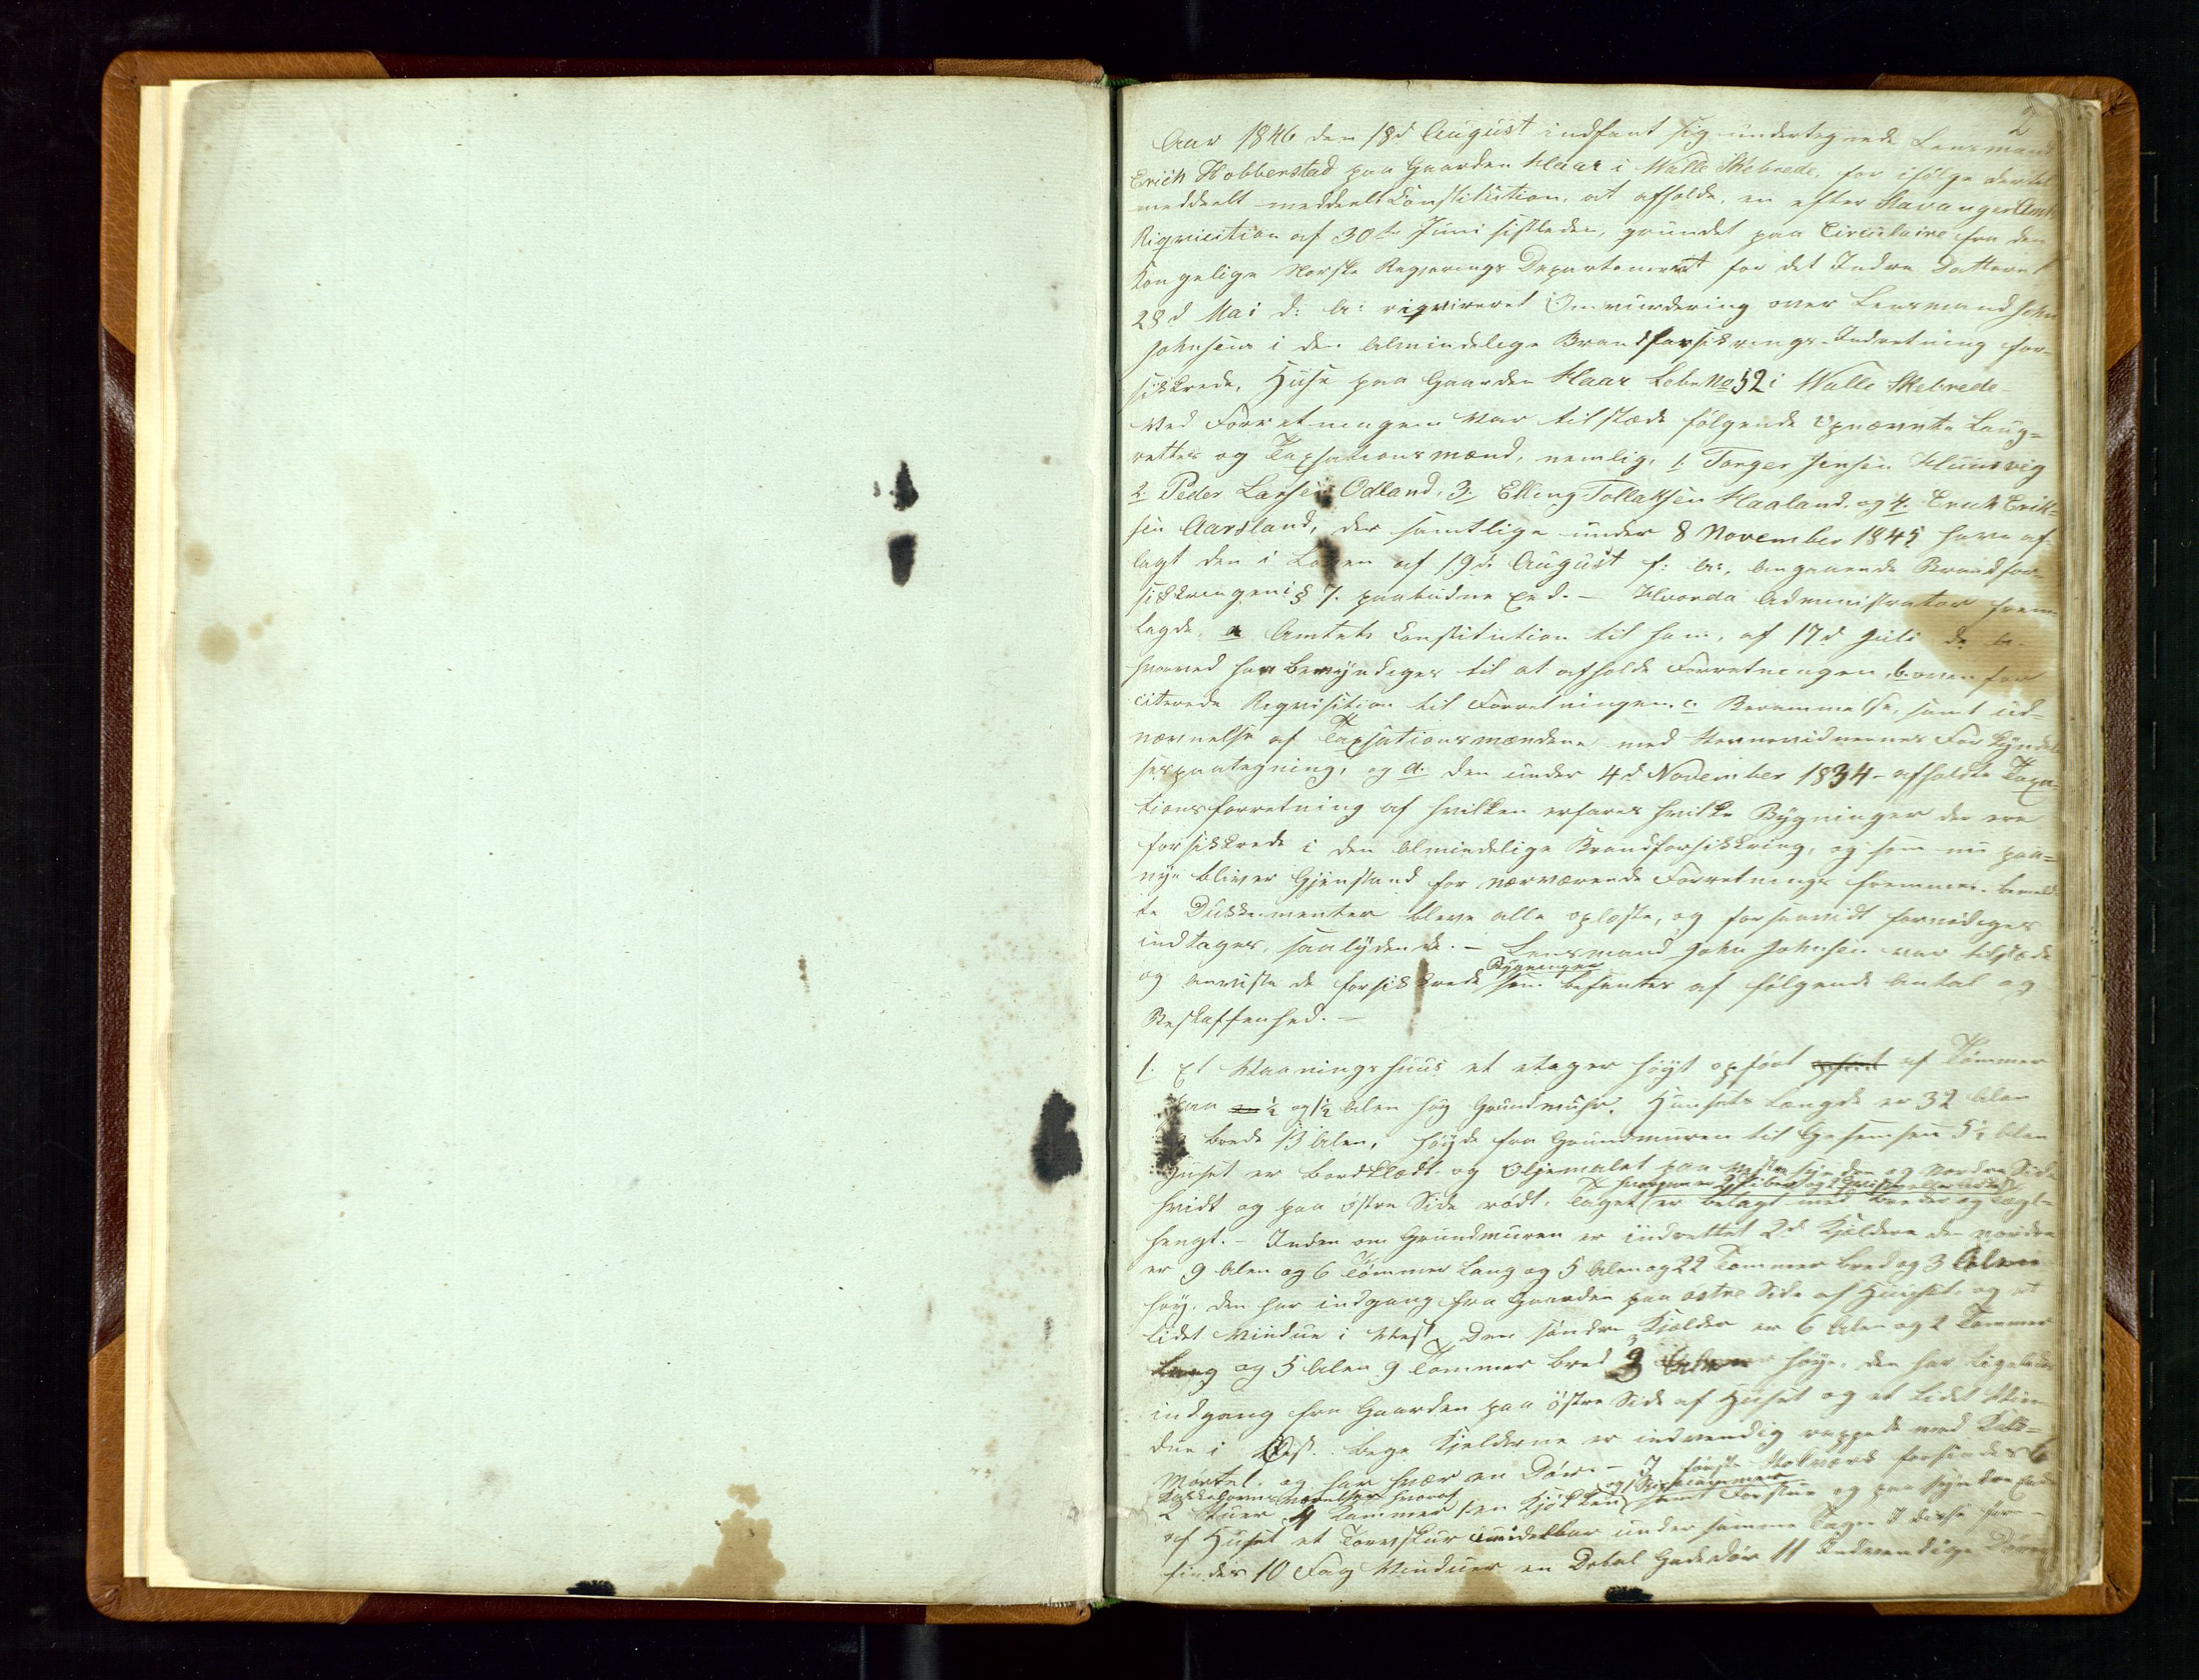 2
Aar 1846 den 18d August indfant sig undertegnede Lensmand
Erich Hobberstad paa Gaarden Haar i Walle Skibrede, for ifølge dertil
meddelt meddeelt Constitution, at afholde, en efter Stavanger Amts
Riqvicition af 30te Juni sistleden, grundet paa Circulaire fra den
Kongelige Norske Regjerings Departement for det Indre Datteret
28d Mai d: A: riqvireret Omvurdering over Lensmand John
Johnsens i den Almindelige Brandforsikrings-Indretning for-
sikkrede, Huse paa Gaarden Haar Lebe No 52 i Walle Skibrede
Ved Forretningen var tilstæde følgende Opnævnte Laug-
rettes og Taxsationsmænd, nemlig, 1. Torger Jensen
2. Peder Larsen Odland, 3. Elling Tollaksen Haaland, og 4. Erich Erik-
sen Aarsland, der samtlige under 8 November 1845 have af-
lagt den i Loven af 19de August f: A:, Angaaende Brandfor-
sikkringen i § 7. paabudne Eed. - Hvorda Administrator frem-
lagde, a Amtets Constitution til ham, af 17d Juli d: A:
hvorved han bemyndiges til at afholde Forretningen, b. oven for
citerede Reqvisition til Forretningen. c. Berammelse, samt ud-
nævnelse af Taxsationsmændene med Stevnevidnernes Forkyndel-
sespaategning, og d. den under 4d November 1834 - afholdte Taxa-
tionsforretning af hvilken erfares hvilke Bygninger der ere
forsikkrede i den Almindelige Brandforsikkring, og som nu paa-
nye bliver Gjenstand for nærværende Forretnings fremme. bemeld-
te Dukkumenter bleve alle oplæste, og forsaavidt fornødiges
indtages, saalydende. - Lensmand John Johnsen var tilstæde
Bygninger
og anviste de forsikkrede som befantes af følgende Antal og
Beskaffenhed. -
1. Et Vaaningshuus et etager høyt opført opført af Tømmer
paa en ½ og 1½ Alen høy Grundmuhr. Huusets Længde er 32 Alen
brede 13 Alen, høyde fra Grundmuren til Gesemsen 5½ Alen
Huset er Bordklædt og Oljemalet paa vestre søndre og Nordre Side
hvidt og paa østre Side rødt. Taget er belagt med Breder og Tægl-
hengt. - Inden om Grundmuren er indrettet 2d Kjeldere den nordre
er 9 Alen og 6 Tommer lang og 5 Alen og 22 Tommer bred og 3 Alen
høy, den har indgang fra Gaarden paa østre Side af Huuset, og et
lidet Vindue i Vest. Den søndre Kjelder er 6 Alen og 2 Tommer
lang og 5 Alen 9 Tommer bred 3 Alen høye, den har ligeledes
indgang fra Gaarden paa østre Side af Huset og et lidet Vin-
due i Vest. Bege Kjelderne er indvendig rappede med Kalk-
Mørtel, og har hver en Dør. - I første Stokværk forfindes 6
og 1 Spisekammer
2 Stuer 4 Kammer 1 en Kjøkken samt Forstue og paa søndre Ende
af Huset et Torvskur umidelbar under samme Tag. I disse for-
findes 10 Fag Vinduer en Dobal Gadedør 11 Indvendige Døre